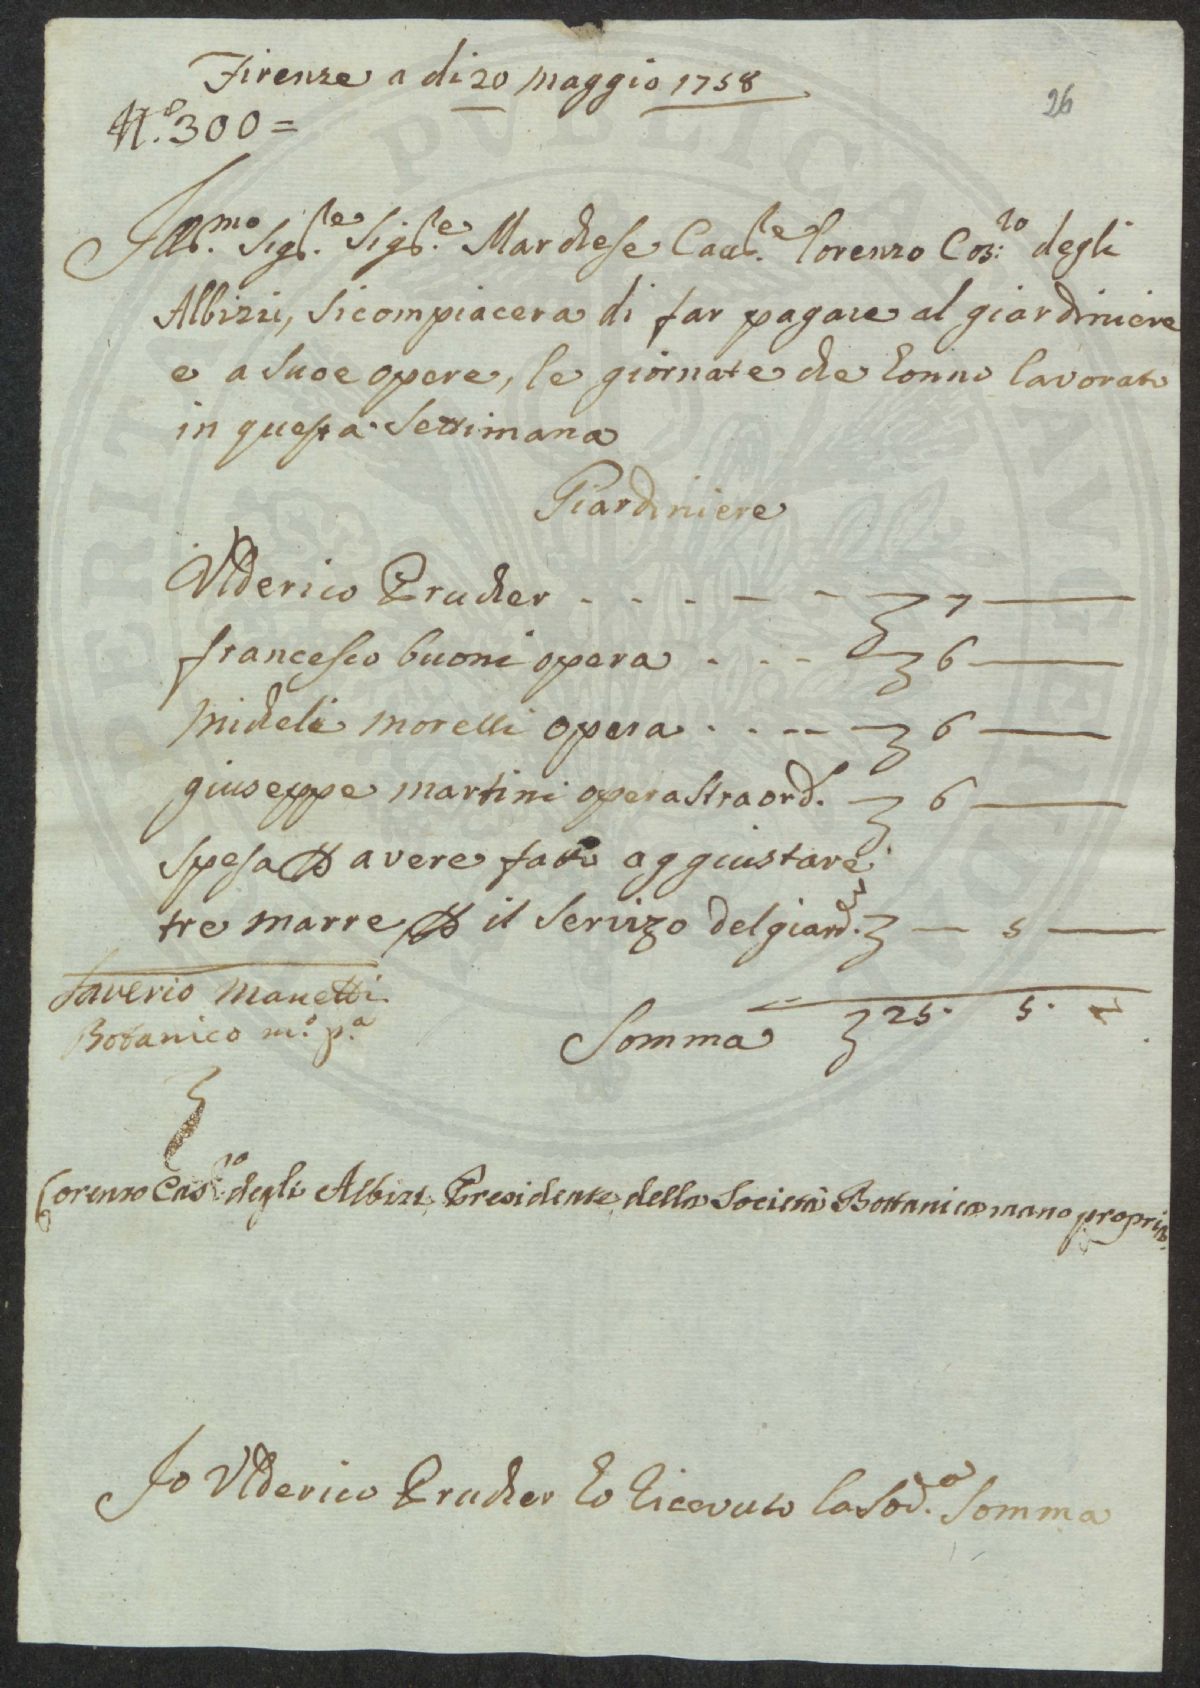 Firenze a di 20 maggio 1758
26
N.º 300 =
Ill.mo Sig.re Sig.re Marchese Cav.re lorenzo Cos:mo degli
Albizzi, si compiacera di far pagare al giardiniere
e a sue opere, le giornate che honno lavorato
in questa Settimana
Giardiniere
Ulderico Prucher . . . . . . 7 —
francesco buoni opera . . . 6 —
micheli morelli opera . . . . 6 —
giuseppe martini opera straord. 6 —
spesa p avere fatto aggiustare
tre marre p il servizo del giard. — 5 —
Saverio Manetti
Botanico m.º p.a
Somma 25. 5. —
Lorenzo Cos.mo degli Albizi Presidente della Società Bottanica mano propria
Io Ulderico Prucher ho ricevuto la sod.a somma